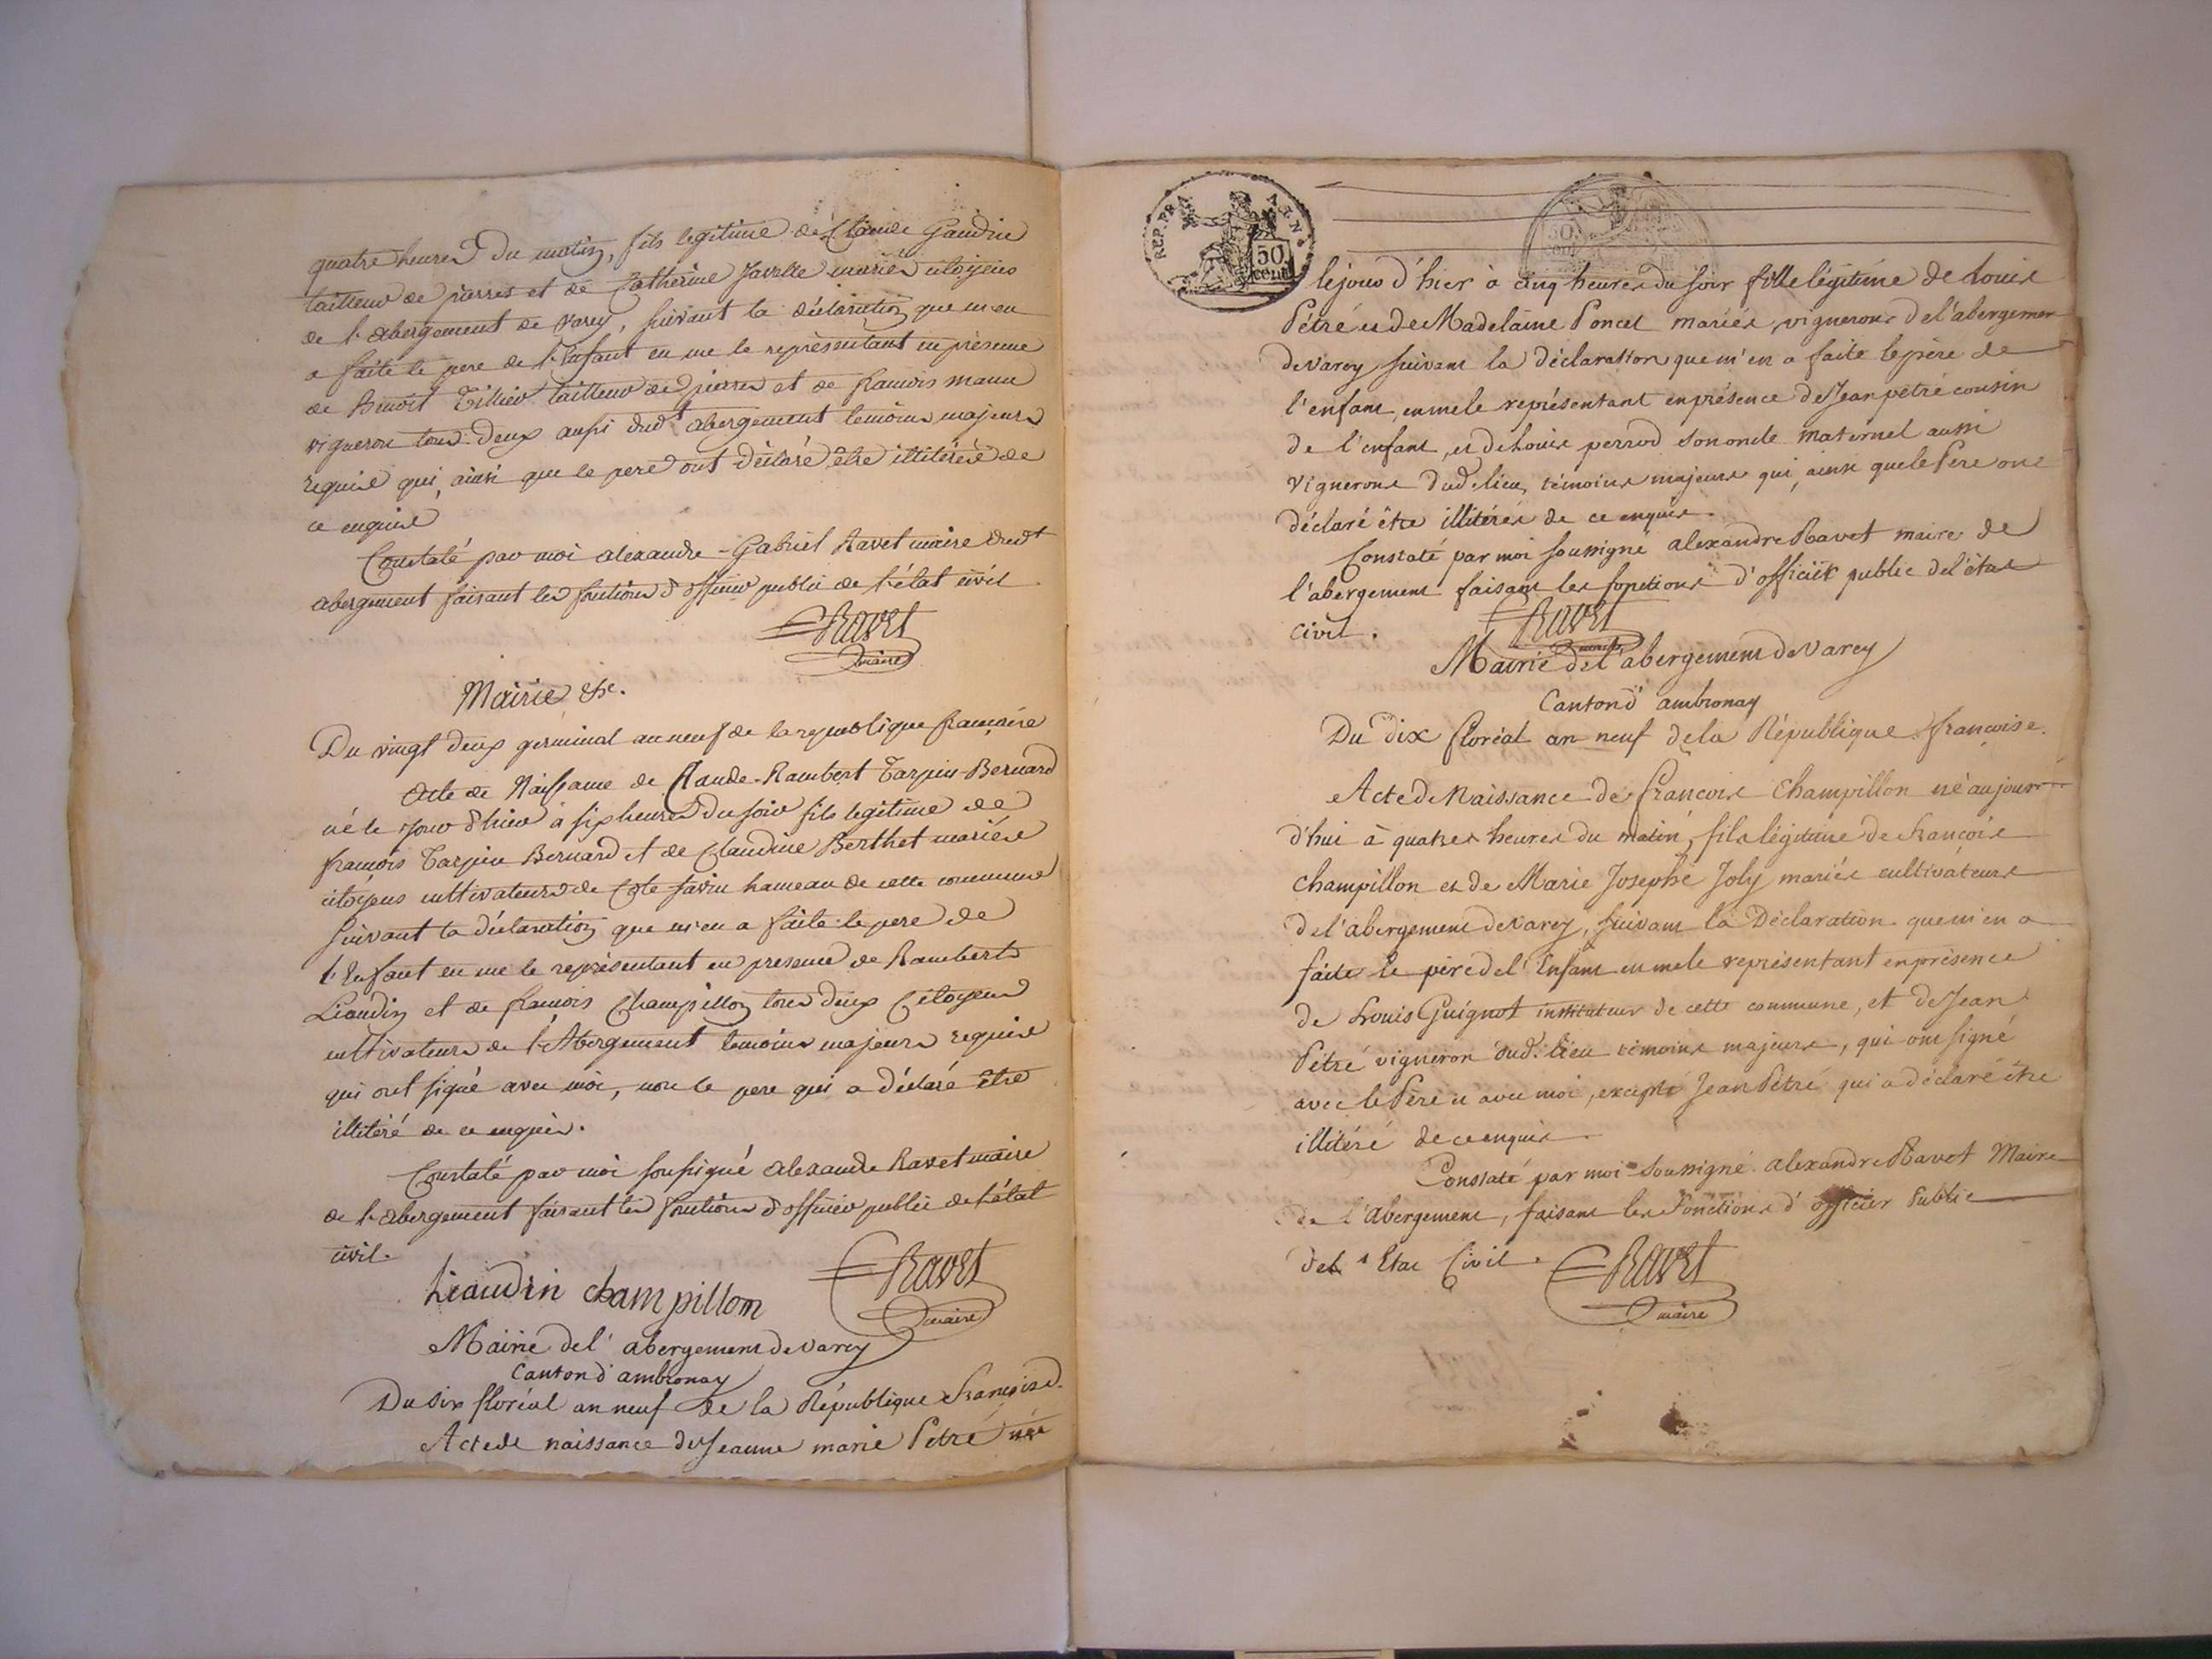 quatre heures du matin, fils legitime de Claude Gaudin
tailleur de pierres et de Catherine Javelle mariés citoyens
de l'abergement de varey, suivant la déclaration que m'en
a faite le pere de l'Enfant en me le représentant en présence
de Benoit Tillier tailleur de pierres et de francois
vigneron tous deux aussi dud.t abergement temoins majeurs
requis qui, ainsi que le pere ont déclaré être illitérés de
ce enquis
Constaté par moi alexandre-Gabriel Ravet maire dud.t
abergement faisant les fonctions d'officier public de l'état civil
Ravet
maire
Mairie &c.
Du vingt deux germinal an neuf de la republique française
Acte de Naissance de Claude-Rambert Tarpin-Bernard
né le jour d'hier à six heures du soir fils legitime de
francois Tarpin Bernard et de Claudine Berthet mariés
citoyens cultivateurs de Cote savin hameau de cette commune
suivant la déclaration que m'en a faite le pere de
l'Enfant en me le représentant en presence de Rambert
Liaudin et de francois Champillon tous deux Citoyens
cultivateurs de l'Abergement temoins majeurs requis
qui ont signé avec moi, non le pere qui a déclaré être
illitéré de ce enquis.
Constaté par moi soussigné alexandre Ravet maire
de l'abergement faisant les fonctions d'officier public de l'état
civil.
Liaudin champillon Ravet
maire
Mairie de l'abergement de varey
Canton d'ambronay
Du dix floréal an neuf de la République française.
Acte de naissance de Jeanne marie Petré née
REP. FRA ARN.
50
cent
50
le jour d'hier à cinq heures du soir fille légitime de Louis
Pétré et de Madelaine Poncet mariés, vignerons de l'abergement
de varey suivant la déclaration que m'en a faite le père de
l'enfant, en me le représentant en présence de Jean pétré cousin
de l'enfant, et de Louis perrod son oncle maternel aussi
vignerons dud. lieu, témoins majeurs qui, ainsi que le Pere ont
déclaré être illitérés de ce enquis.
Constaté par moi soussigné alexandre Ravet maire de
l'abergement faisant les fonctions d'officier public de l'état
civil. Ravet
maire
Mairie de l'abergement de varey
Canton d'ambronay
Du dix floréal an neuf de la République françoise.
Acte de Naissance de francois Champillon né aujour
d'hui à quatre heures du matin, fils légitime de francois
champillon et de Marie Josephe Joly mariés cultivateurs
de l'abergement de varey, suivant la Déclaration que m'en a
faite le père de l'Enfant en me le représentant en présence
de Louis Guignot instituteur de cette commune, et de Jean
Pétré vigneron dud. lieu témoins majeurs, qui ont signé
avec le Père et avec moi, excepté Jean Pétré qui a déclaré être
illitéré de ce enquis.
Constaté par moi soussigné alexandre Ravet Maire
de l'abergement, faisant les Fonctions d'officier Public
de l'Etat Civil. Ravet
maire